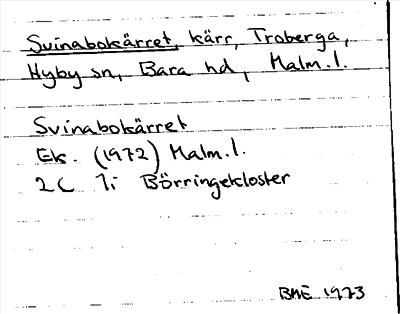 Svinabokärret, kärr, Troberga,
Hyby sn, Bara hd, Malm.l.
Svinabokärret
Ek. (1972) Malm.l.
2C 7i Börringekloster
BME 1973